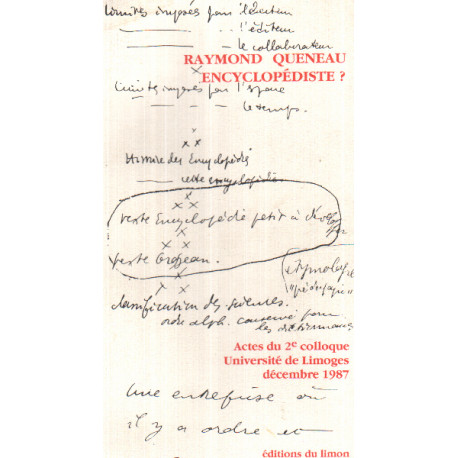 Limites imposées par l'électeur
——— l'éditeur
——— le collaborateur
RAYMOND QUENEAU
ENCYCLOPÉDISTE ?
Limites imposées par l'espace
— — — le temps.
Histoire des Encyclopédies
— cette encyclopédie
texte Encyclopédie petit à
texte
etymologie
classification des sciences.
ordre alph. conservé pour
les dictionnaires
Actes du 2e colloque
Université de Limoges
décembre 1987
Une entreprise où
il y a ordre et
éditions du limon